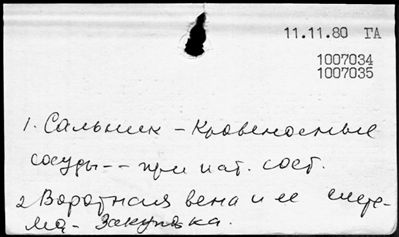 11.11.80 ГА
1007034
1007035
1. Сальник - Кровеносные
сосуды -- при пат. сост.
2 Воротная вена и ее систе-
ма - Закупорка.